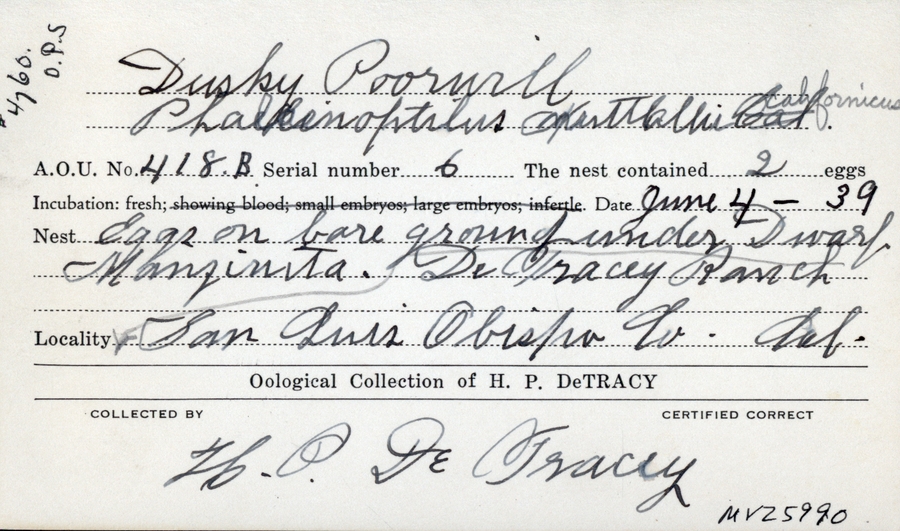 #4760.
O.P.S
Dusky Poorwill
Phalaeinoptilus nuttallii Cal. californicus
A.O.U. No. 418.B Serial number 6 The nest contained 2 eggs
Incubation: fresh; showing blood; small embryos; large embryos; infertile. Date June 4 - 39
Nest Eggs on bare ground under Dwarf
Manzinita. De Tracey Ranch
Locality San Luis Obispo Co. Cal.
Oological Collection of H. P. DeTRACY
COLLECTED BY CERTIFIED CORRECT
H. P. De Tracey
MVZ5990